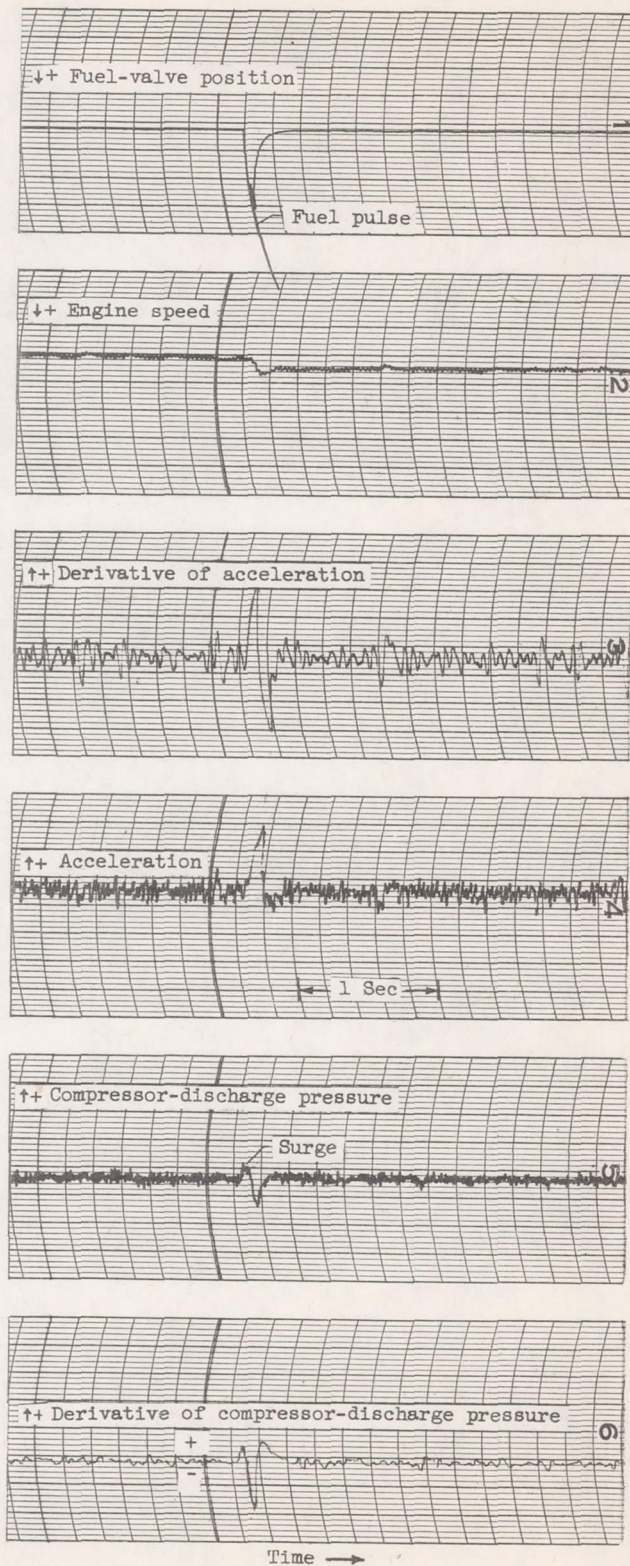 ↓+ Fuel-valve position
1
Fuel pulse
↓+ Engine speed
2
↑+ Derivative of acceleration
3
↑+ Acceleration
4
1 Sec
↑+ Compressor-discharge pressure
Surge
5
↑+ Derivative of compressor-discharge pressure
6
+
-
Time →